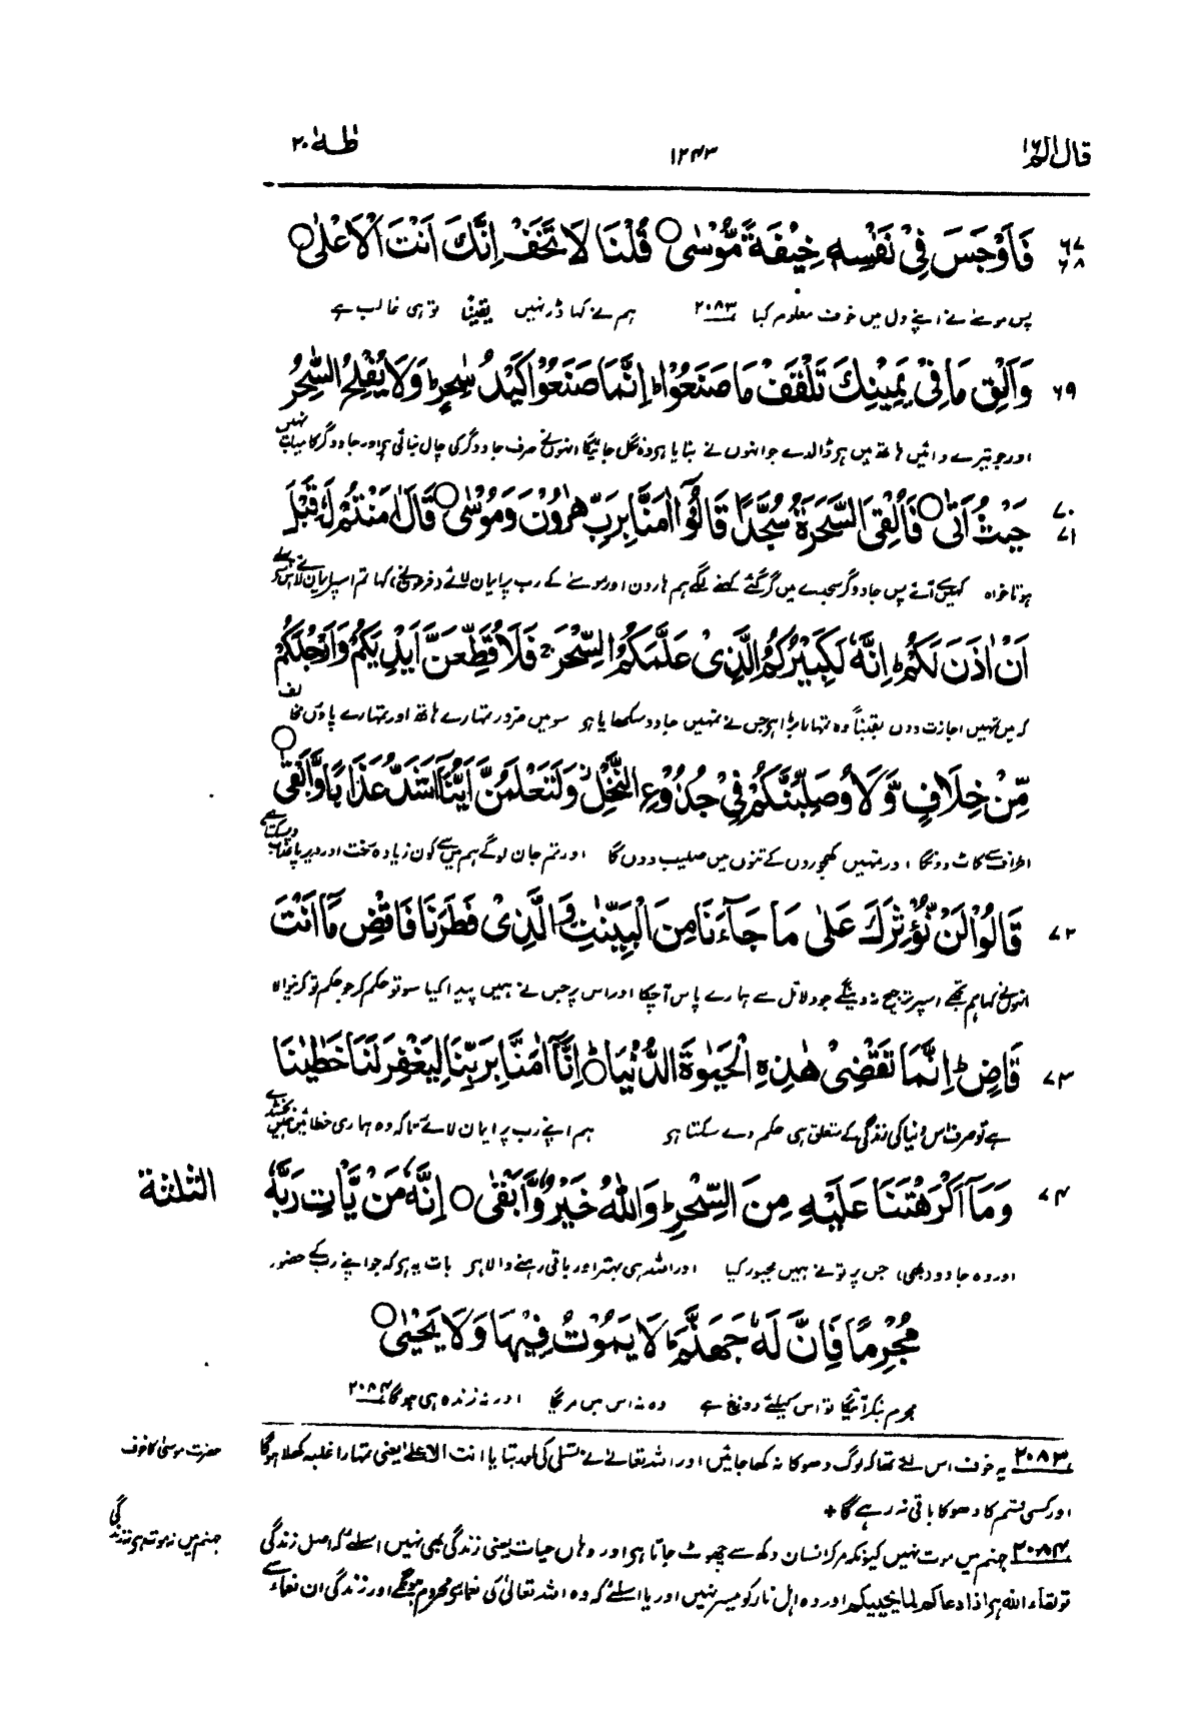 قال الم ۱۶ ۱۲۴۳ طٰهٰ ۲۰
۶۷ ۶۸ فَاَوْجَسَ فِیْ نَفْسِهٖ خِیْفَةً مُّوْسٰی ○ قُلْنَا لَا تَخَفْ اِنَّكَ اَنْتَ الْاَعْلٰی ○
پس موسےٰ نے اپنے دل میں خوف معلوم کیا ۲۰۸۳ ہم نے کہا ڈر نہیں یقیناً تو ہی غالب ہے
۶۹ وَاَلْقِ مَا فِیْ یَمِیْنِكَ تَلْقَفْ مَا صَنَعُوْا ؕ اِنَّمَا صَنَعُوْا كَیْدُ سٰحِرٍ ؕ وَلَا یُفْلِحُ السّٰحِرُ
اور جو تیرے دائیں ہاتھ میں ہے ڈالدے جو انہوں نے بنایا ہے وہ نگل جائیگا انہوں نے صرف جادوگر کی چال بنائی ہے اور جادوگر کامیاب نہیں
۷۰ ۷۱ حَیْثُ اَتٰی ○ فَاُلْقِیَ السَّحَرَةُ سُجَّدًا قَالُوْۤا اٰمَنَّا بِرَبِّ هٰرُوْنَ وَمُوْسٰی ○ قَالَ اٰمَنْتُمْ لَهٗ قَبْلَ
ہوتا خواہ کہیں آئے پس جادوگر سجدے میں گر گئے کہنے لگے ہم ہارون اور موسےٰ کے رب پر ایمان لائے (فرعون نے) کہا تم اسپر ایمان لائے پہلے
اَنْ اٰذَنَ لَكُمْ ؕ اِنَّهٗ لَكَبِیْرُكُمُ الَّذِیْ عَلَّمَكُمُ السِّحْرَ ۚ فَلَاُقَطِّعَنَّ اَیْدِیَكُمْ وَاَرْجُلَكُمْ
کہ میں تمہیں اجازت دوں یقیناً وہ تمہارا بڑا ہے جس نے تمہیں جادو سکھایا ہے سو میں ضرور تمہارے ہاتھ اور تمہارے پاؤں مخالف
مِّنْ خِلَافٍ وَّلَاُوصَلِّبَنَّكُمْ فِیْ جُذُوْعِ النَّخْلِ ؗ وَلَتَعْلَمُنَّ اَیُّنَاۤ اَشَدُّ عَذَابًا وَّاَبْقٰی ○
اطراف سے کاٹ دونگا اور تمہیں کھجوروں کے تنوں میں صلیب دوں گا اور تم جان لوگے ہم میں سے کون زیادہ سخت اور دیرپا عذاب دے سکتا ہے
۷۲ قَالُوْا لَنْ نُّؤْثِرَكَ عَلٰی مَا جَآءَنَا مِنَ الْبَیِّنٰتِ وَالَّذِیْ فَطَرَنَا فَاقْضِ مَاۤ اَنْتَ
انہوں نے کہا ہم تجھے اسپر ترجیح نہ دینگے جو دلائل سے ہمارے پاس آچکا اور اس پر جس نے ہمیں پیدا کیا سو تو حکم کر جو حکم تو کرنیوالا
۷۳ قَاضٍ ؕ اِنَّمَا تَقْضِیْ هٰذِهِ الْحَیٰوةَ الدُّنْیَا ؕ○ اِنَّاۤ اٰمَنَّا بِرَبِّنَا لِیَغْفِرَ لَنَا خَطٰیٰنَا
ہے تو صرف اس دنیا کی زندگی کے متعلق ہی حکم دے سکتا ہے ہم اپنے رب پر ایمان لائے تاکہ وہ ہماری خطائیں ہمیں بخشدے
۷۴ وَمَاۤ اَكْرَهْتَنَا عَلَیْهِ مِنَ السِّحْرِ ؕ وَاللّٰهُ خَیْرٌ وَّاَبْقٰی ○ اِنَّهٗ مَنْ یَّاْتِ رَبَّهٗ الثلثة
اور وہ جادو (بھی) جس پر تو نے ہمیں مجبور کیا اور اللہ ہی بہتر اور باقی رہنے والا ہے بات یہ ہے کہ جو اپنے رب کے حضور
مُجْرِمًا فَاِنَّ لَهٗ جَهَنَّمَ ؕ لَا یَمُوْتُ فِیْهَا وَلَا یَحْیٰی ○
مجرم بنکر آئیگا تو اس کیلئے دوزخ ہے وہ نہ اس میں مریگا اور نہ زندہ ہی ہوگا ۲۰۸۴
۲۰۸۳ یہ خوف اس لئے تھا کہ لوگ دھوکا نہ کھا جائیں اور اللہ تعالےٰ نے تسلی کی طور بتایا انت الاعلیٰ یعنی تمہارا غلبہ کھلا ہوگا حضرت موسیٰ کا خوف
اور کسی قسم کا دھوکا باقی نہ رہے گا +
۲۰۸۴ جہنم میں موت نہیں کیونکہ مر کر انسان دکھ سے چھوٹ جاتا ہے اور وہاں حیات یعنی زندگی بھی نہیں اسلئے کہ اصل زندگی جہنم میں نہ موت ہے نہ زندگی
تو لقاء اللہ ہے اذا دعاکم لما یحییکم اور وہ اہل نار کو میسر نہیں اور یا اسلئے کہ وہ اللہ تعالیٰ کی نعماء سے محروم ہونگے اور زندگی ان نعماء سے